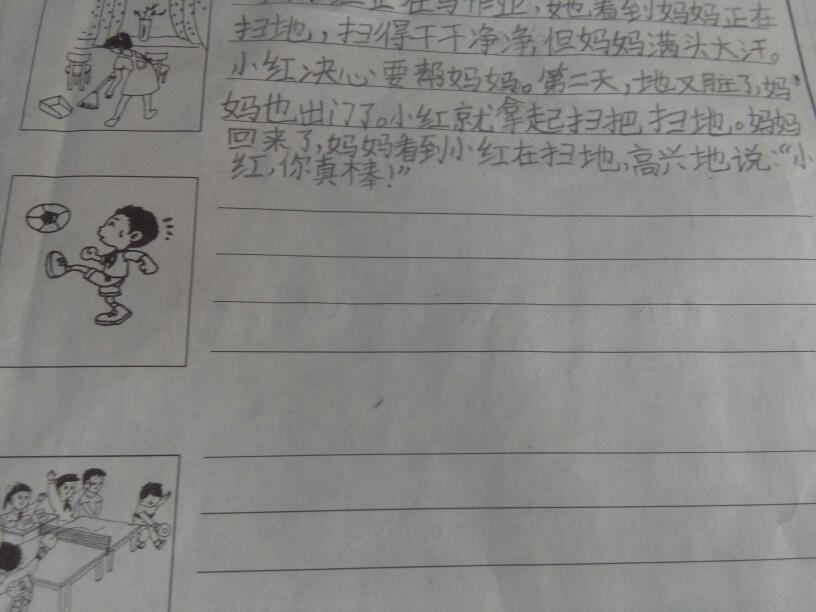 正在写作业，她看到妈妈正在
扫地，，扫得干干净净，但妈妈满头大汗。
小红决心要帮妈妈。第二天，地又脏了，妈
妈也出门了。小红就拿起扫把扫地。妈妈
回来了，妈妈看到小红在扫地，高兴地说：“小
红，你真棒！”